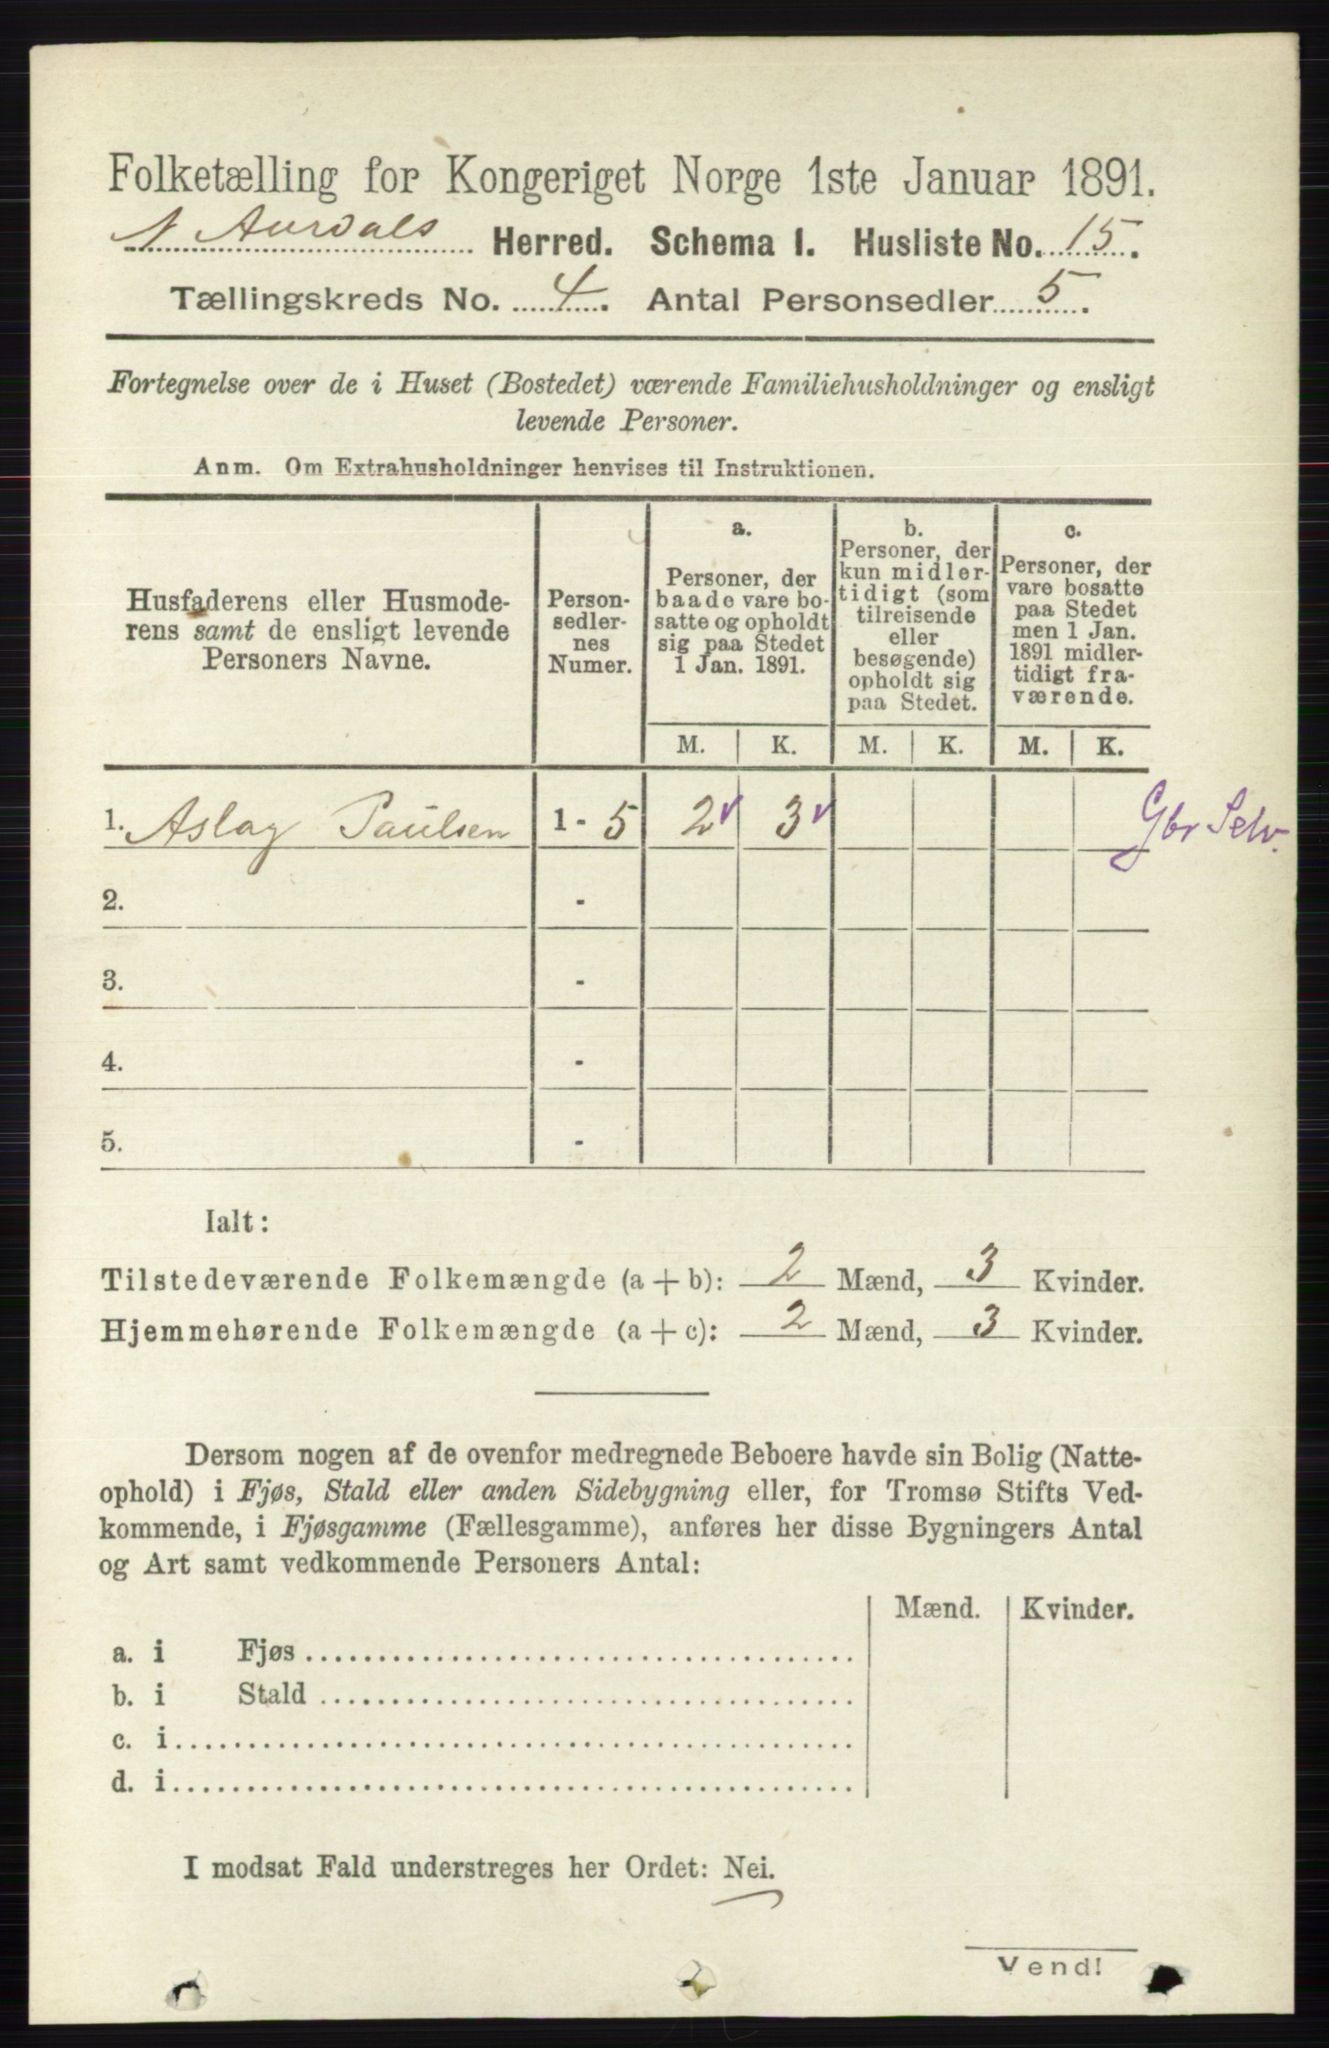 Folketælling for Kongeriget Norge 1ste Januar 1891.
N Aurdals Herred. Schema I. Husliste No. 15.
Tællingskreds No. 4. Antal Personsedler 5.
Fortegnelse over de i Huset (Bostedet) værende Familiehusholdninger og ensligt
levende Personer.
Anm. Om Extrahusholdninger henvises til Instruktionen.
Husfaderens eller Husmode-
rens samt de ensligt levende
Personers Navne.
Person-
sedler-
nes
Numer.
a.
Personer, der
baade vare bo-
satte og opholdt
sig paa Stedet
1 Jan. 1891.
b.
Personer, der
kun midler-
tidigt (som
tilreisende
eller
besøgende)
opholdt sig
paa Stedet.
c.
Personer, der
vare bosatte
paa Stedet
men 1 Jan.
1891 midler-
tidigt fra-
værende.
M. K. M. K. M. K.
1. Aslag Paulsen 1 - 5 2 3 Gbr Selv.
2. -
3. -
4. -
5. -
Ialt:
Tilstedeværende Folkemængde (a + b): 2 Mænd, 3 Kvinder.
Hjemmehørende Folkemængde (a + c): 2 Mænd, 3 Kvinder.
Dersom nogen af de ovenfor medregnede Beboere havde sin Bolig (Natte-
ophold) i Fjøs, Stald eller anden Sidebygning eller, for Tromsø Stifts Ved-
kommende, i Fjøsgamme (Fællesgamme), anføres her disse Bygningers Antal
og Art samt vedkommende Personers Antal:
Mænd. Kvinder.
a. i Fjøs
b. i Stald
c. i
d. i
I modsat Fald understreges her Ordet: Nei.
Vend!